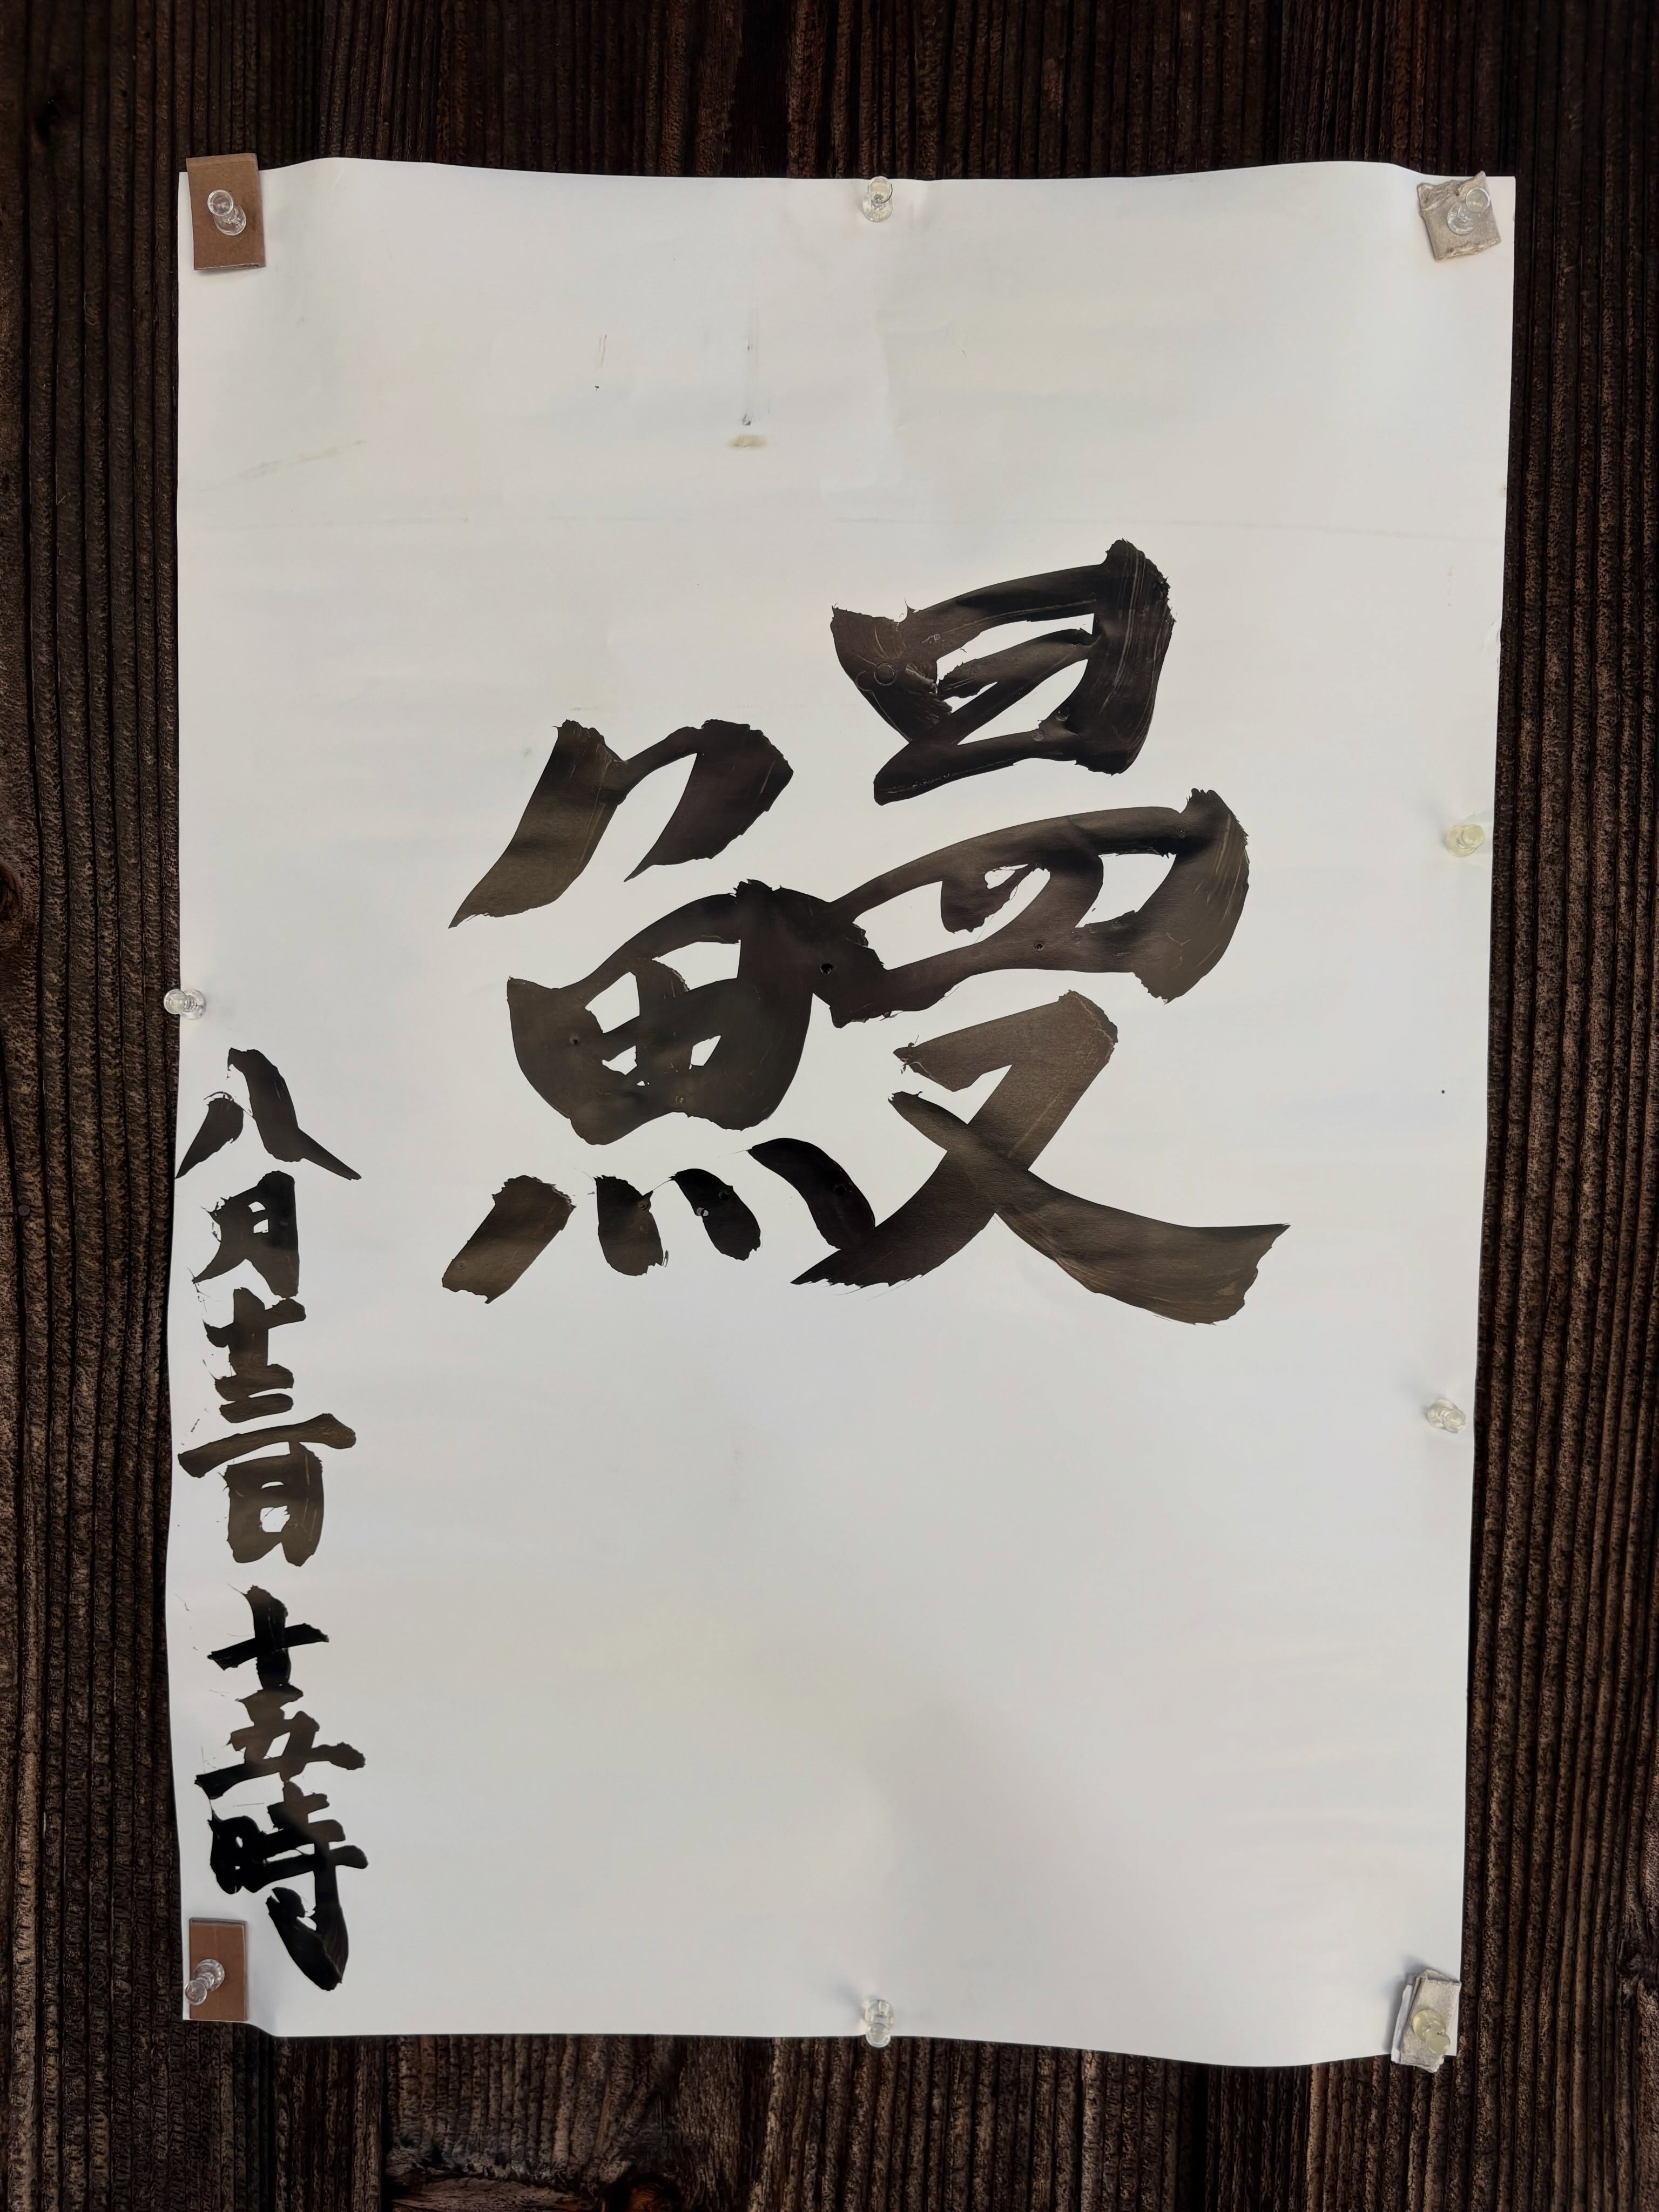 鰻
八月十三日 十五時